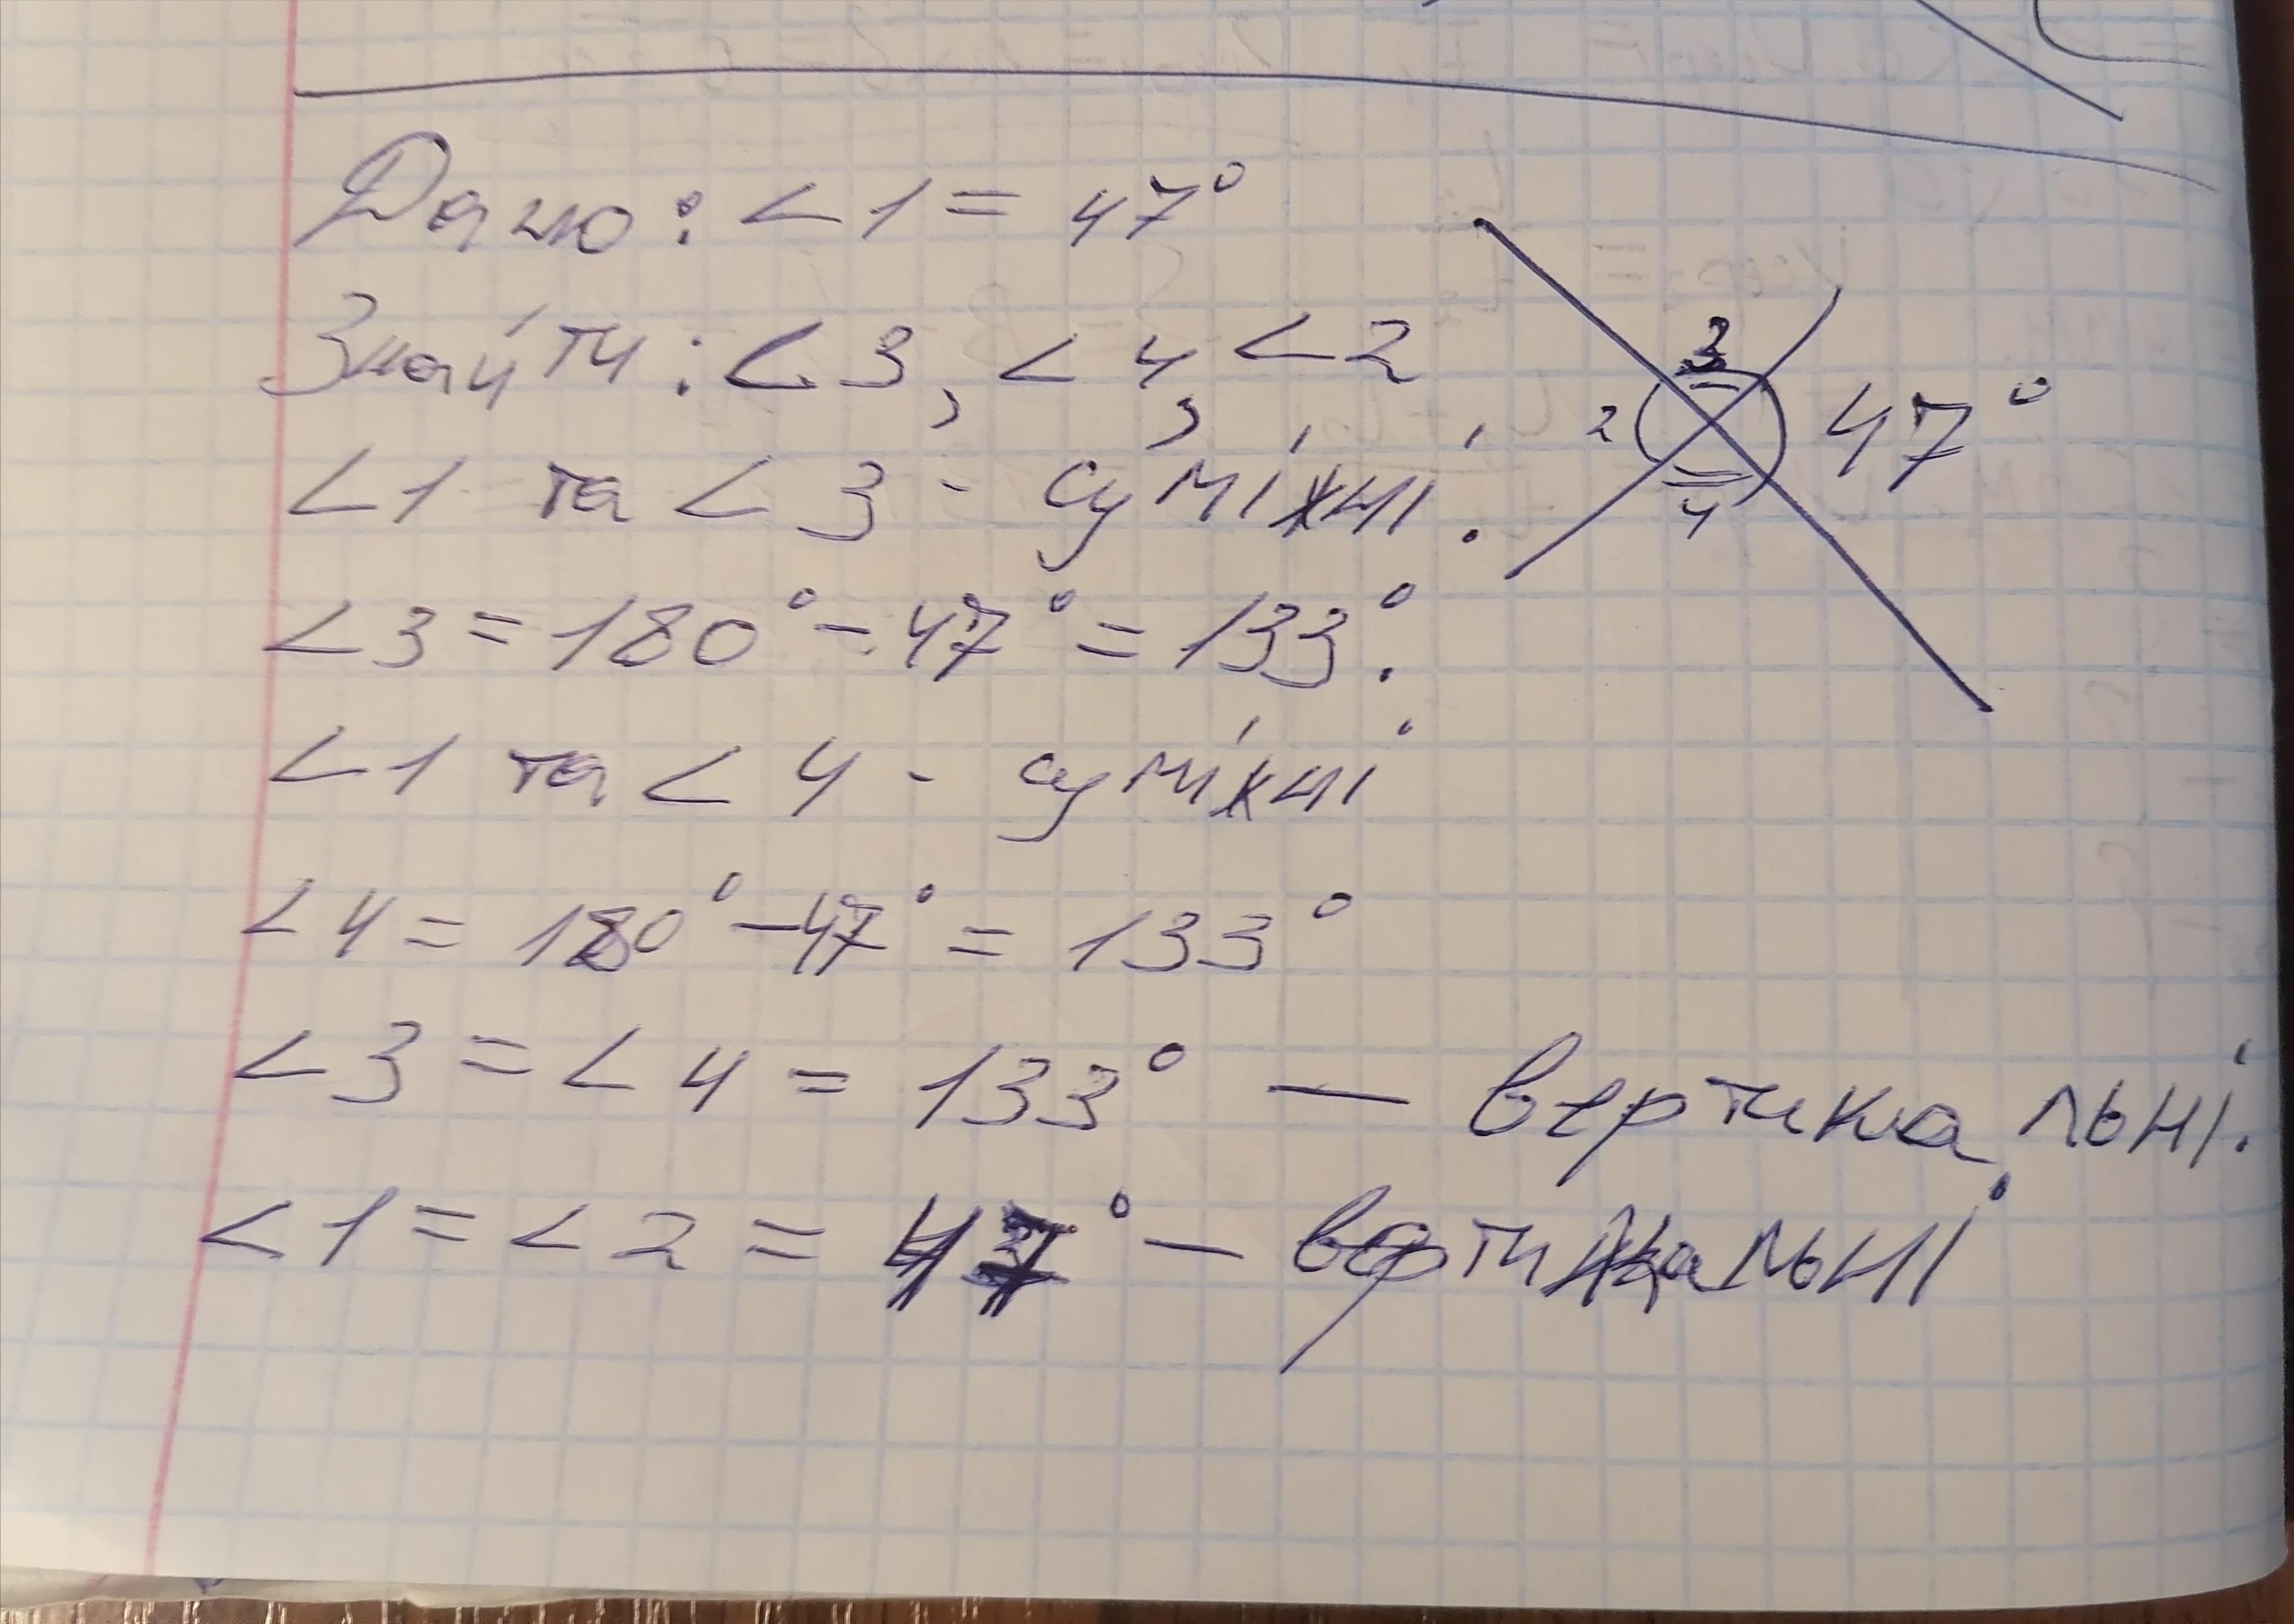 Дано: ∠1 = 47°
Знайти: ∠3, ∠4, ∠2
∠1 та ∠3 - суміжні.
∠3 = 180° - 47° = 133°.
∠1 та ∠4 - суміжні
∠4 = 180° - 47° = 133°
∠3 = ∠4 = 133° — вертикальні.
∠1 = ∠2 = 47° — вертикальні
3
2
47°
4